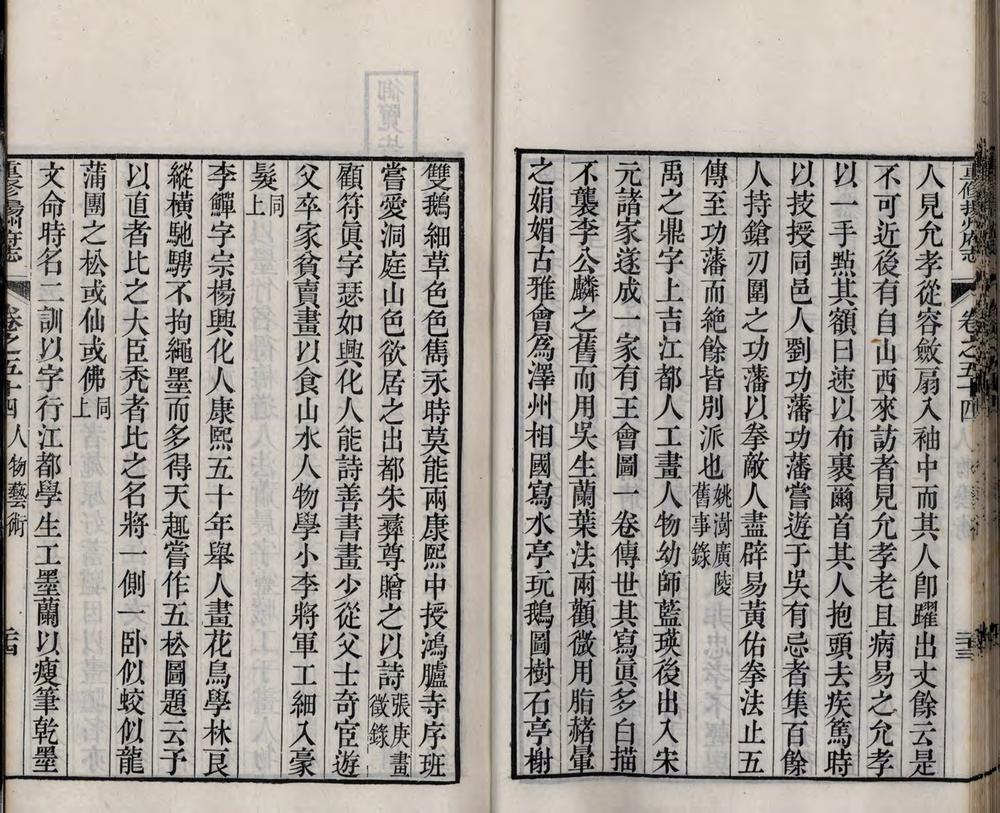 重修揚州府志 卷之五十四 人物藝術 三三
人見允孝從容斂扇入袖中而其人卽躍出丈餘云是
不可近後有自山西來訪者見允孝老且病易之允孝
以一手㸃其額曰速以布裹爾首其人抱頭去疾篤時
以技授同邑人劉功藩功藩嘗遊于吳有忌者集百餘
人持鎗刃圍之功藩以拳敵人盡辟易黃佑拳法止五
傳至功藩而絕餘皆別派也姚澍廣陵舊事錄
禹之鼎字上吉江都人工畫人物幼師藍瑛後出入宋
元諸家遂成一家有王會圖一卷傳世其寫眞多白描
不襲李公麟之舊而用吳生蘭葉法兩顴微用脂赭暈
之娟媚古雅會爲澤州相國寫水亭玩鵝圖樹石亭榭
雙鵝細草色色雋永時莫能兩康熙中授鴻臚寺序班
嘗愛洞庭山色欲居之出都朱彝尊贈之以詩張庚畫徵錄
顧符眞字瑟如興化人能詩善書畫少從父士奇宦遊
父卒家貧賣畫以食山水人物學小李將軍工細入豪
髮同上
李鱓字宗楊興化人康熙五十年舉人畫花鳥學林良
縱橫馳騁不拘繩墨而多得天趣嘗作五松圖題云予
以直者比之大臣秃者比之名將一側一卧似蛟似龍
蒲團之松或仙或佛同上
文命時名二訓以字行江都學生工墨蘭以瘦筆乾墨
重修揚州府志 卷之五十四 人物藝術 三四